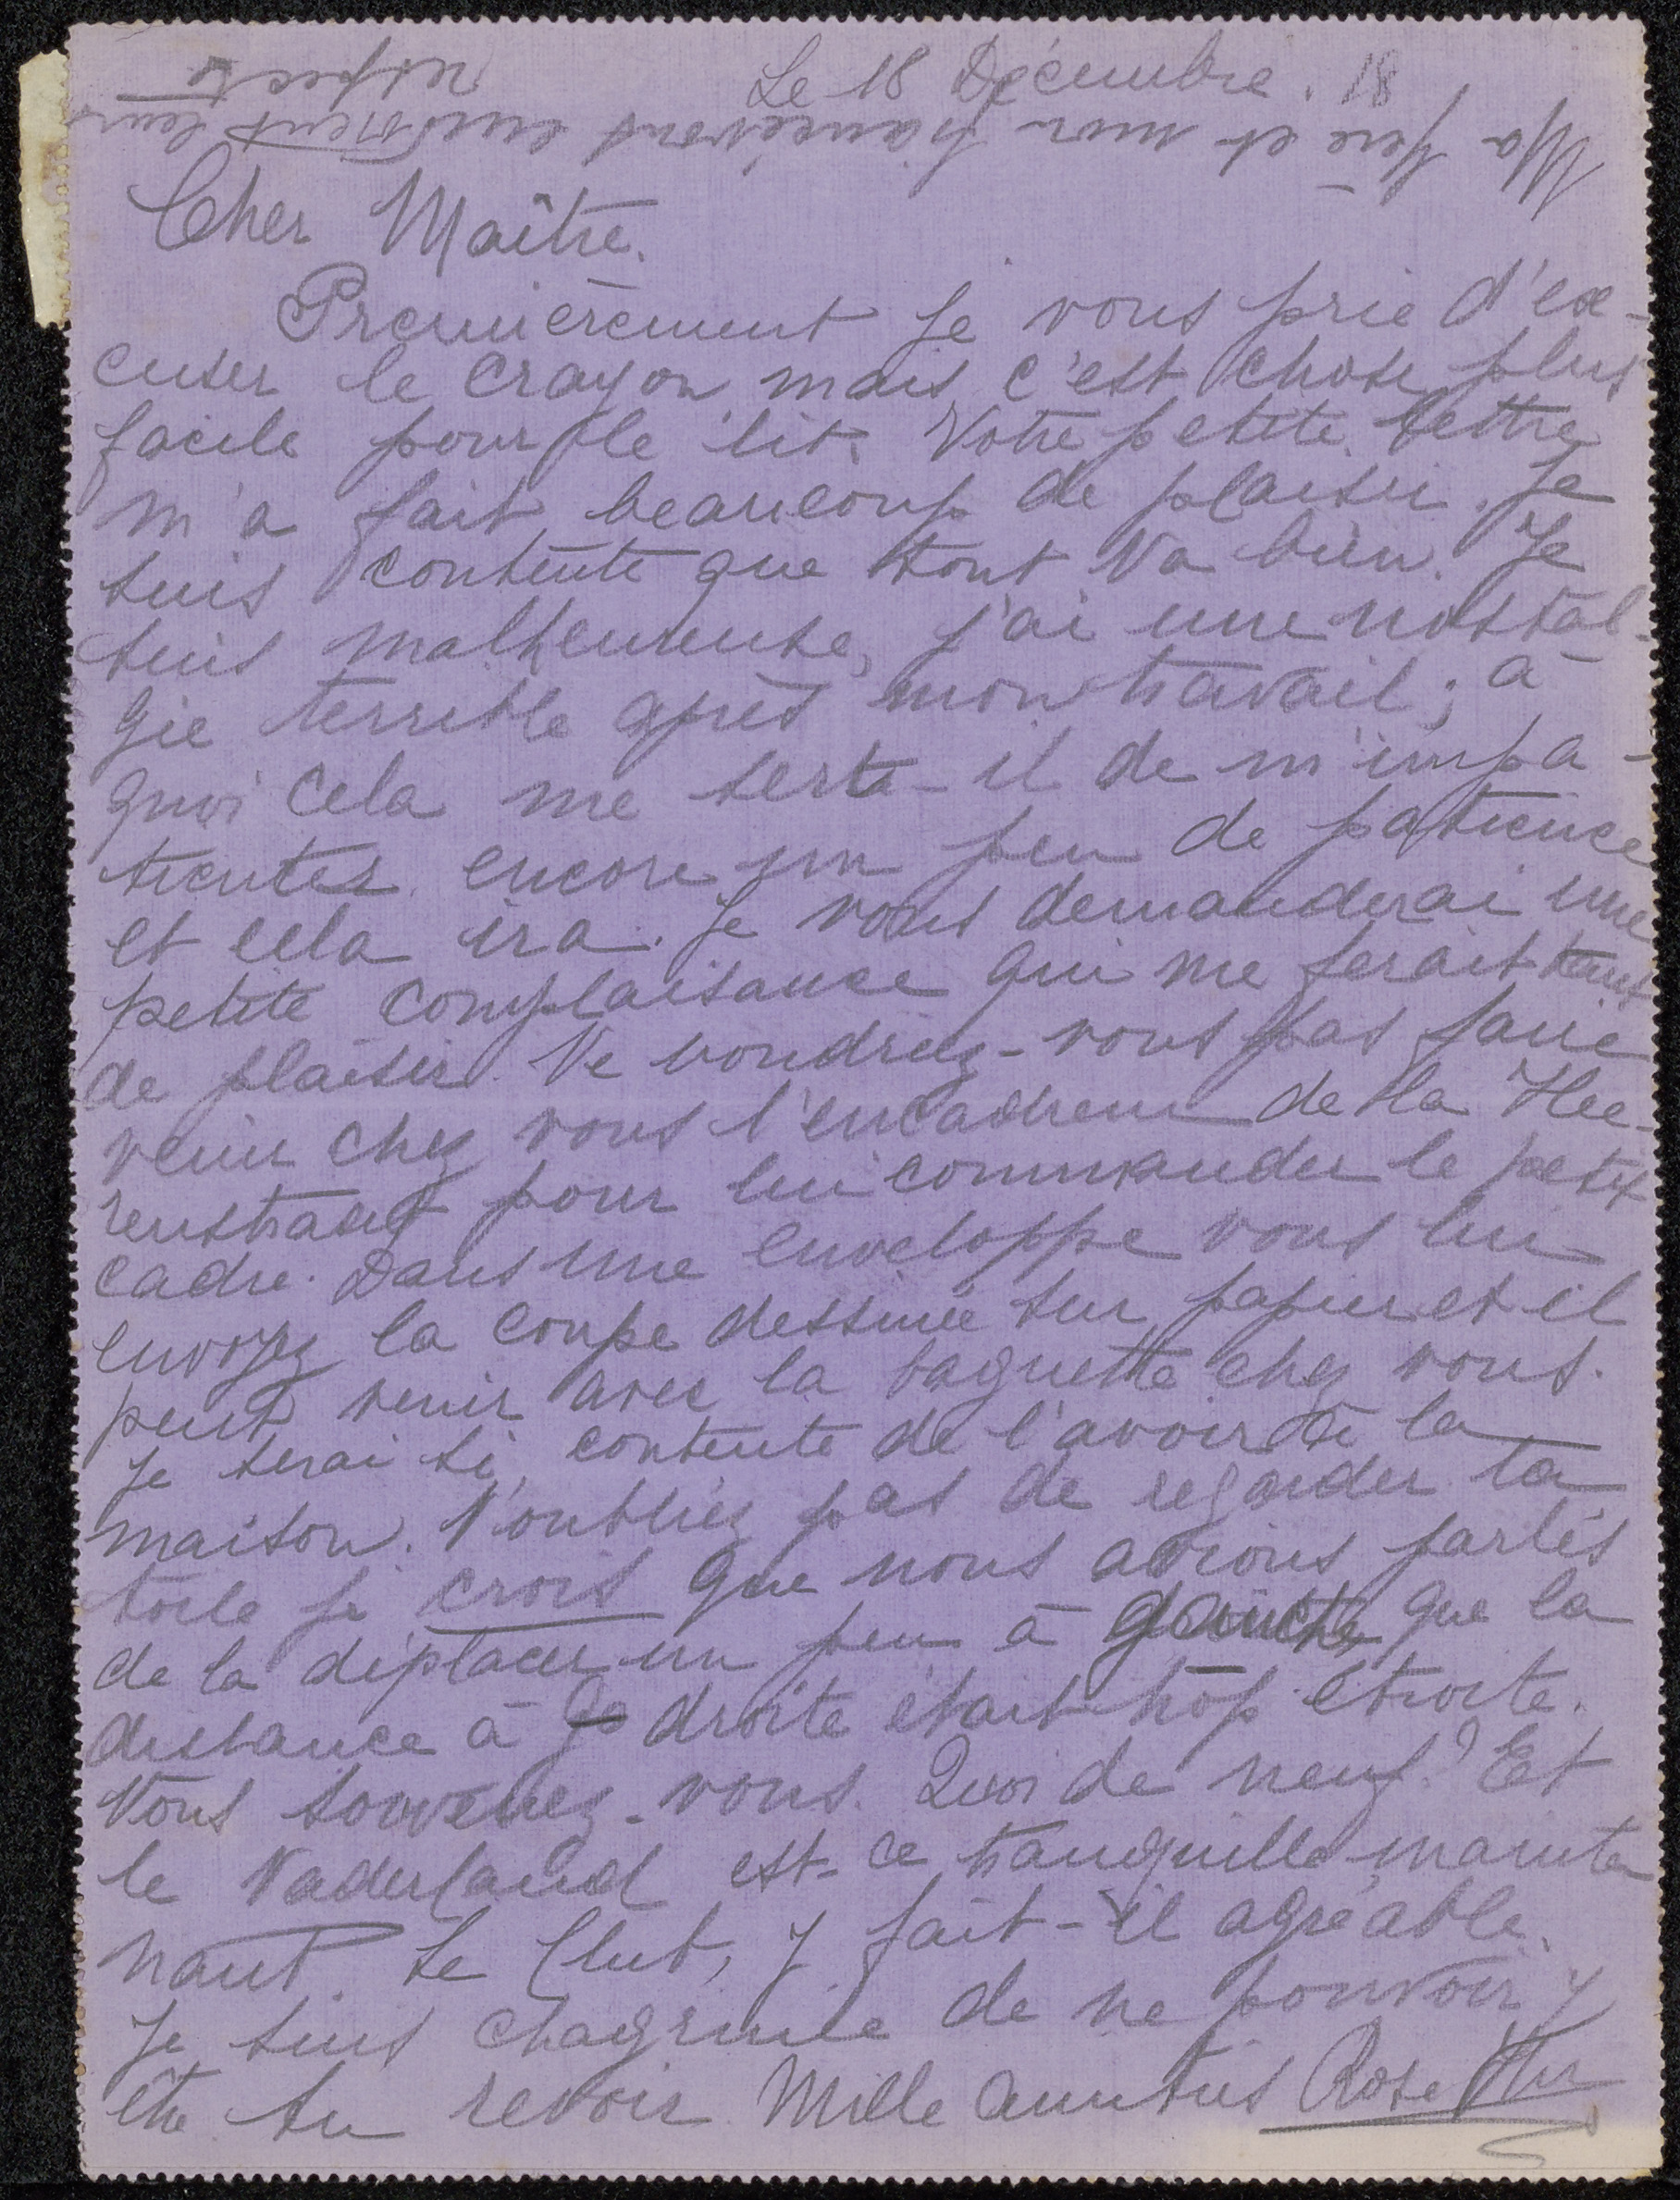 Le 18 Décembre. 18
Cher Maître.
Premièrement je vous prie d'ex-
cuser le crayon, mais c'est chose plus
facile pour le lit. Votre petite lettre
m'a fait beaucoup de plaisir. Je
suis contente que tout va bien. Je
suis malheureuse, j'ai une nostal-
gie terrible après mon travail; à
quoi cela me serta-il de m'impa-
tienter encore un peu de patience
et cela ira. Je vous demanderai une
petite complaisance qui me ferait tant
de plaisir. Ne voudriez-vous pas faire
venir chez vous l'encadreur de la Hee-
renstraat pour lui commander le petit
cadre. Dans une enveloppe vous lui
envoyez la coupe dessinée sur papier et il
peut venir avec la baguette chez vous.
Je serai si contente de l'avoir à la
maison. N'oubliez pas de regarder la
toile je crois que nous avions parlés
de la déplacer un peu à gauche que la
distance à droite était trop étroite.
Vous souvenez-vous. Quoi de neuf? Et
le Vaderland est-ce tranquille mainte
nant. Le Club, y fait-il agréable.
Je suis chagrinée de ne pouvoir y
être. Au revoir Mille amitiés Rose
Ma père et mon fiancé vous envoient leurs
respects